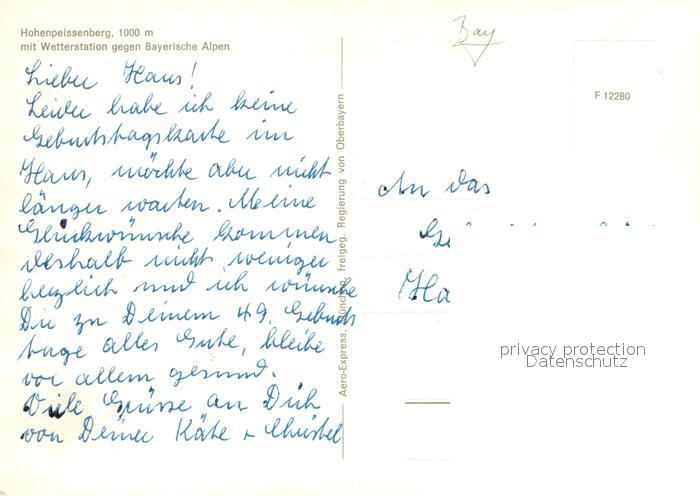 Hohenpeissenberg, 1000 m
mit Wetterstation gegen Bayerische Alpen
Lieber Hans!
Leider habe ich keine
Geburtstagskarte im
Haus, möchte aber nicht
länger warten. Meine
Glückwünsche kommen
deshalb nicht weniger
herzlich und ich wünsche
Dir zu Deinem 49. Geburts
tage alles Gute, bleibe
vor allem gesund.
Viele Grüsse an Dich
von Deiner Käte + Christel
Aero-Express, München, freigeg. Regierung von Oberbayern
Bay
F 12280
An das
Ha
privacy protection
Datenschutz